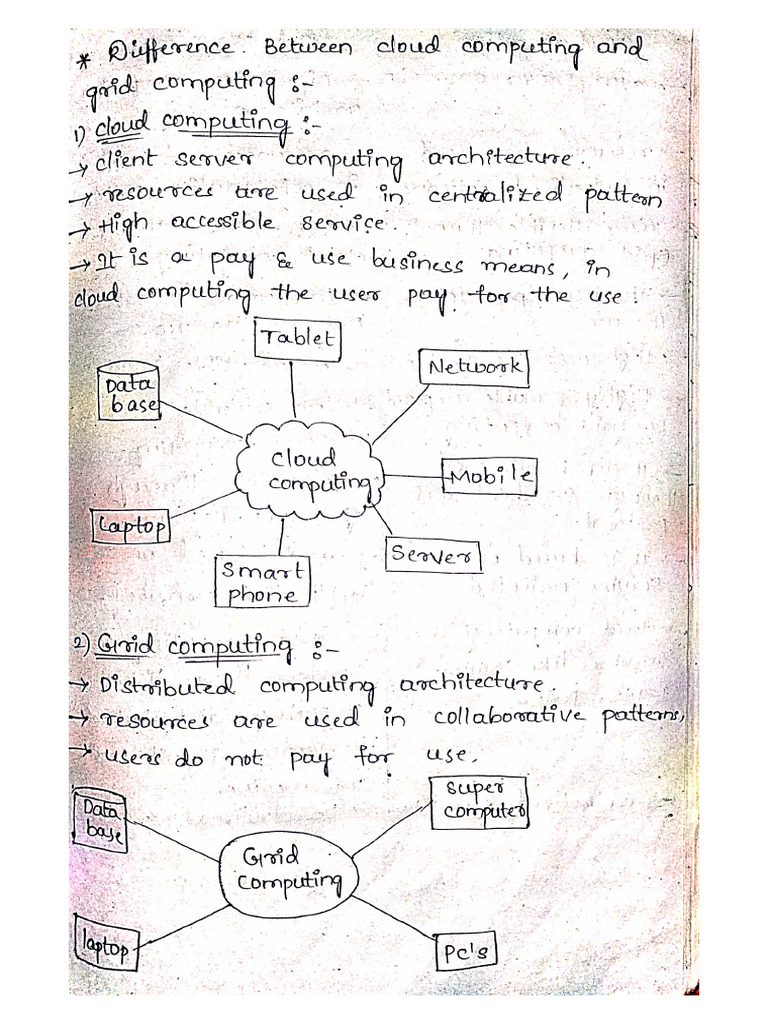 * Difference Between cloud computing and
grid computing :-
1) cloud computing :-
→ client server computing architecture.
→ resources are used in centralized pattern
→ High accessible service.
→ It is a pay & use business means, in
cloud computing the user pay for the use.
Tablet
Network
Data
base
cloud
computing
Mobile
Laptop
Server
Smart
phone
2) Grid computing :-
→ Distributed computing architecture.
→ resources are used in collaborative patterns,
→ users do not pay for use.
Data
base
super
computer
Grid
computing
laptop
Pc's